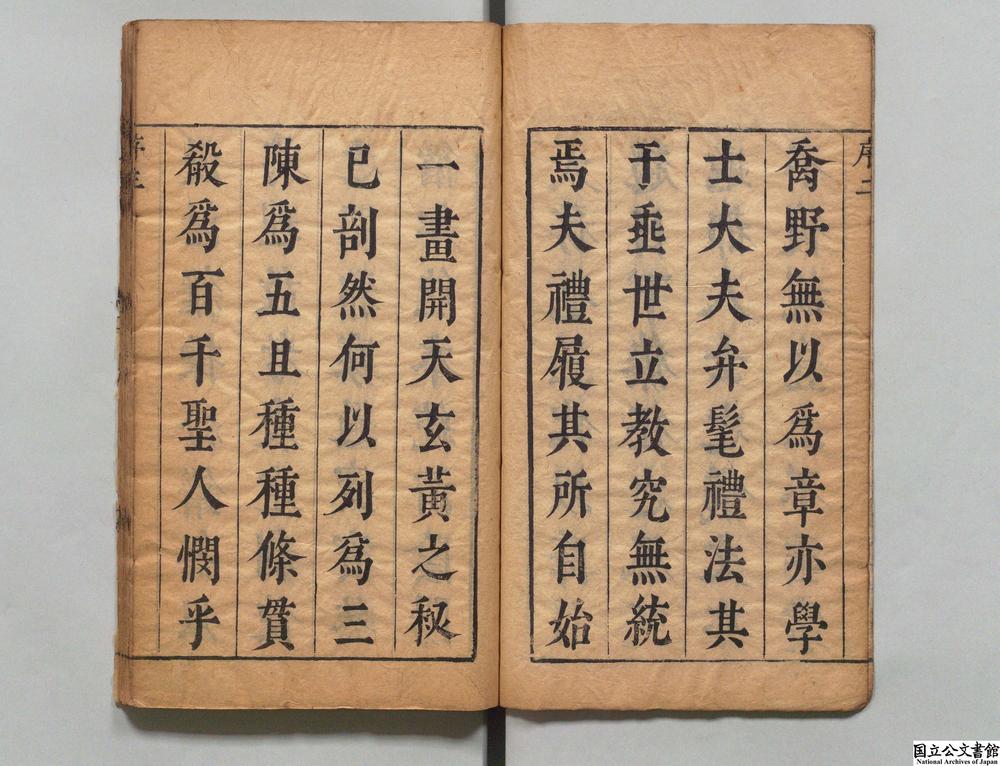 序二
喬野無以爲章亦學
士大夫弁髦禮法其
于垂世立教究無統
焉夫禮履其所自始
一畫開天玄黃之秘
已剖然何以列爲三
陳爲五且種種條貫
殽爲百千聖人憫乎
序三
国立公文書館
National Archives of Japan